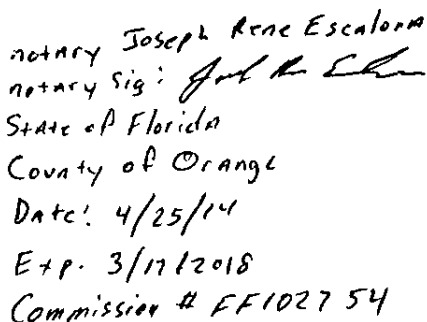 notary Joseph Rene Escalona
notary sig:
State of Florida
County of Orange
Date: 4/25/14
Exp. 3/17/2018
Commission # FF102754